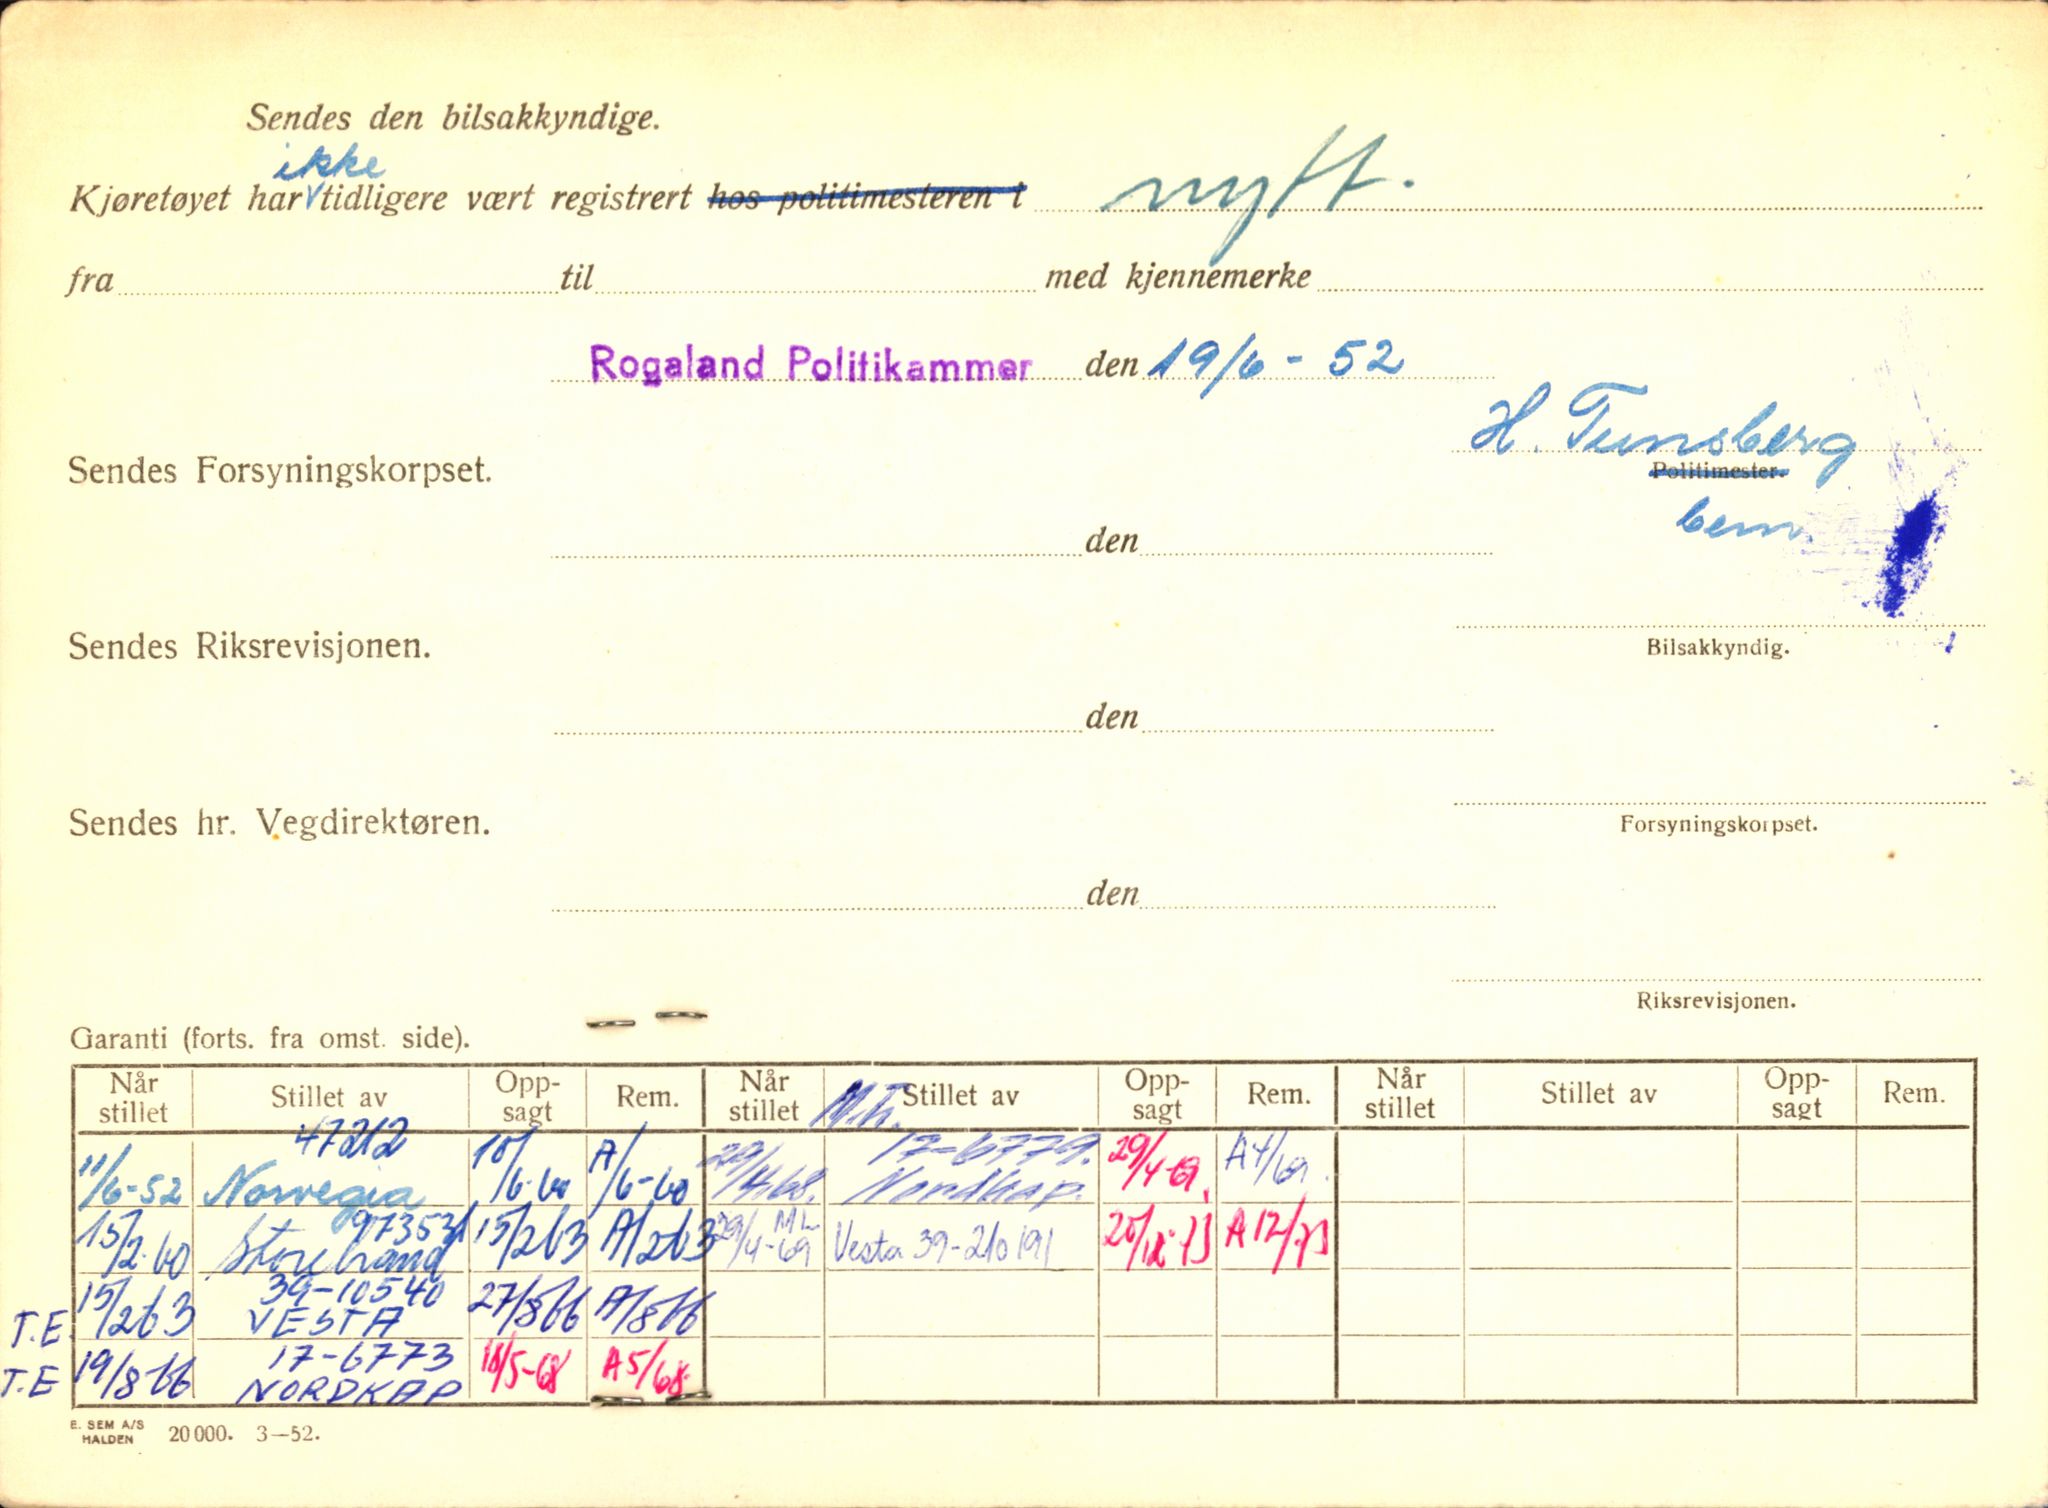 Sendes den bilsakkyndige.
ikke
Kjøretøyet har tidligere vært registrert hos politimesteren i nytt.
fra til med kjennemerke
Rogaland Politikammer den 19/6 - 52
H. Tunsberg
Sendes Forsyningskorpset. Politimester.
bem.
den
Sendes Riksrevisjonen. Bilsakkyndig.
den
Sendes hr. Vegdirektøren. Forsyningskorpset.
den
Riksrevisjonen.
Garanti (forts. fra omst. side).
Når stillet Stillet av Opp-sagt Rem. Når stillet Stillet av Opp-sagt Rem. Når stillet Stillet av Opp-sagt Rem.
47212 17-6779.
11/6-52 Norvegia 18/6-60 A/6-60 29/4-68. Nordkap. 29/4-69. A4/69.
97353
15/2-60 Storebrand 15/2 63 A/2 63 29/4-69 Vesta 39-210191 A12/73
39-10540
T.E. 15/2 63 VESTA 27/8 66 A/8 66
17-6773
T.E 19/8 66 NORDKAP 18/5-68 A5/68.
E. SEM A/S
HALDEN 20000. 3—52.